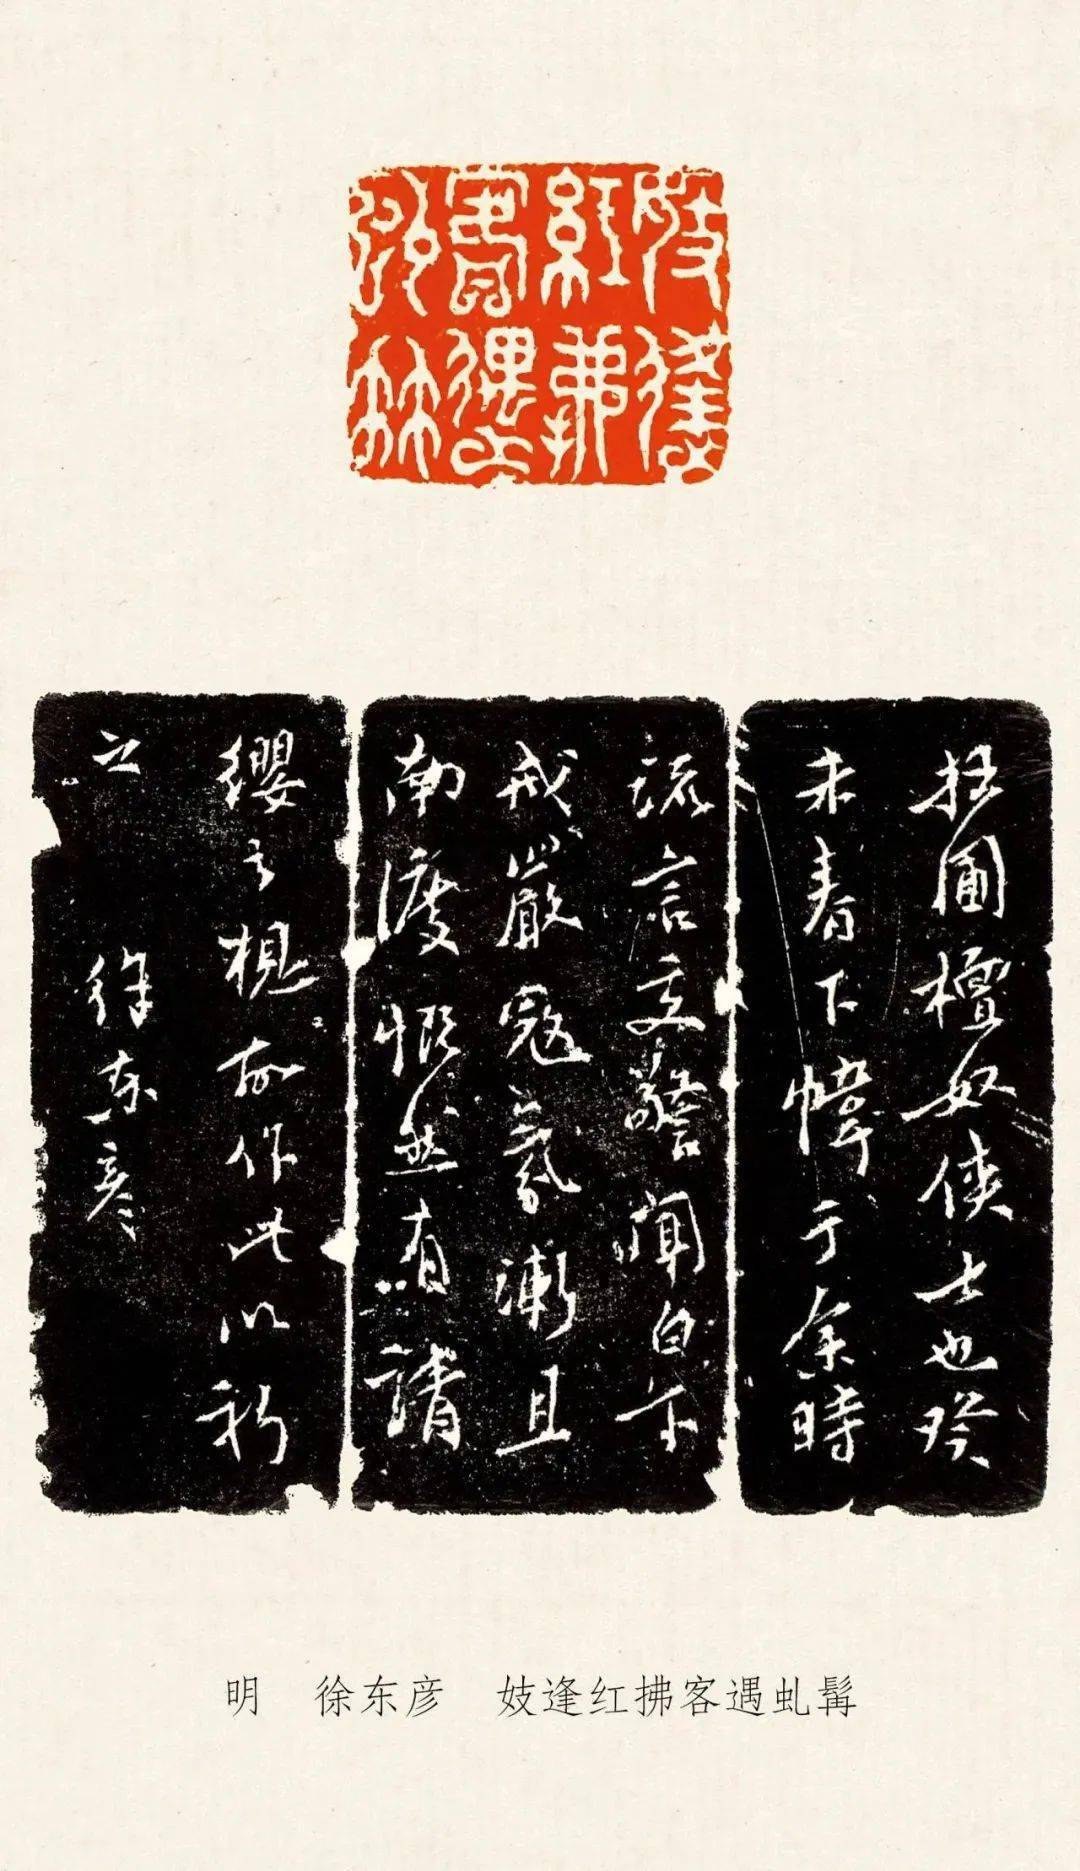 妓逢
紅拂
客遇
虬髯
圃檀奴俠士也癸
未春下帷于余時
流言交警聞白下
戒嚴寇氛漸且
南渡慨然有請
纓之故作此以
之 徐東彥
明 徐东彦 妓逢红拂客遇虬髯